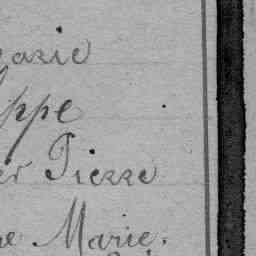 arie
ppe
er Pierre
ne Marie.